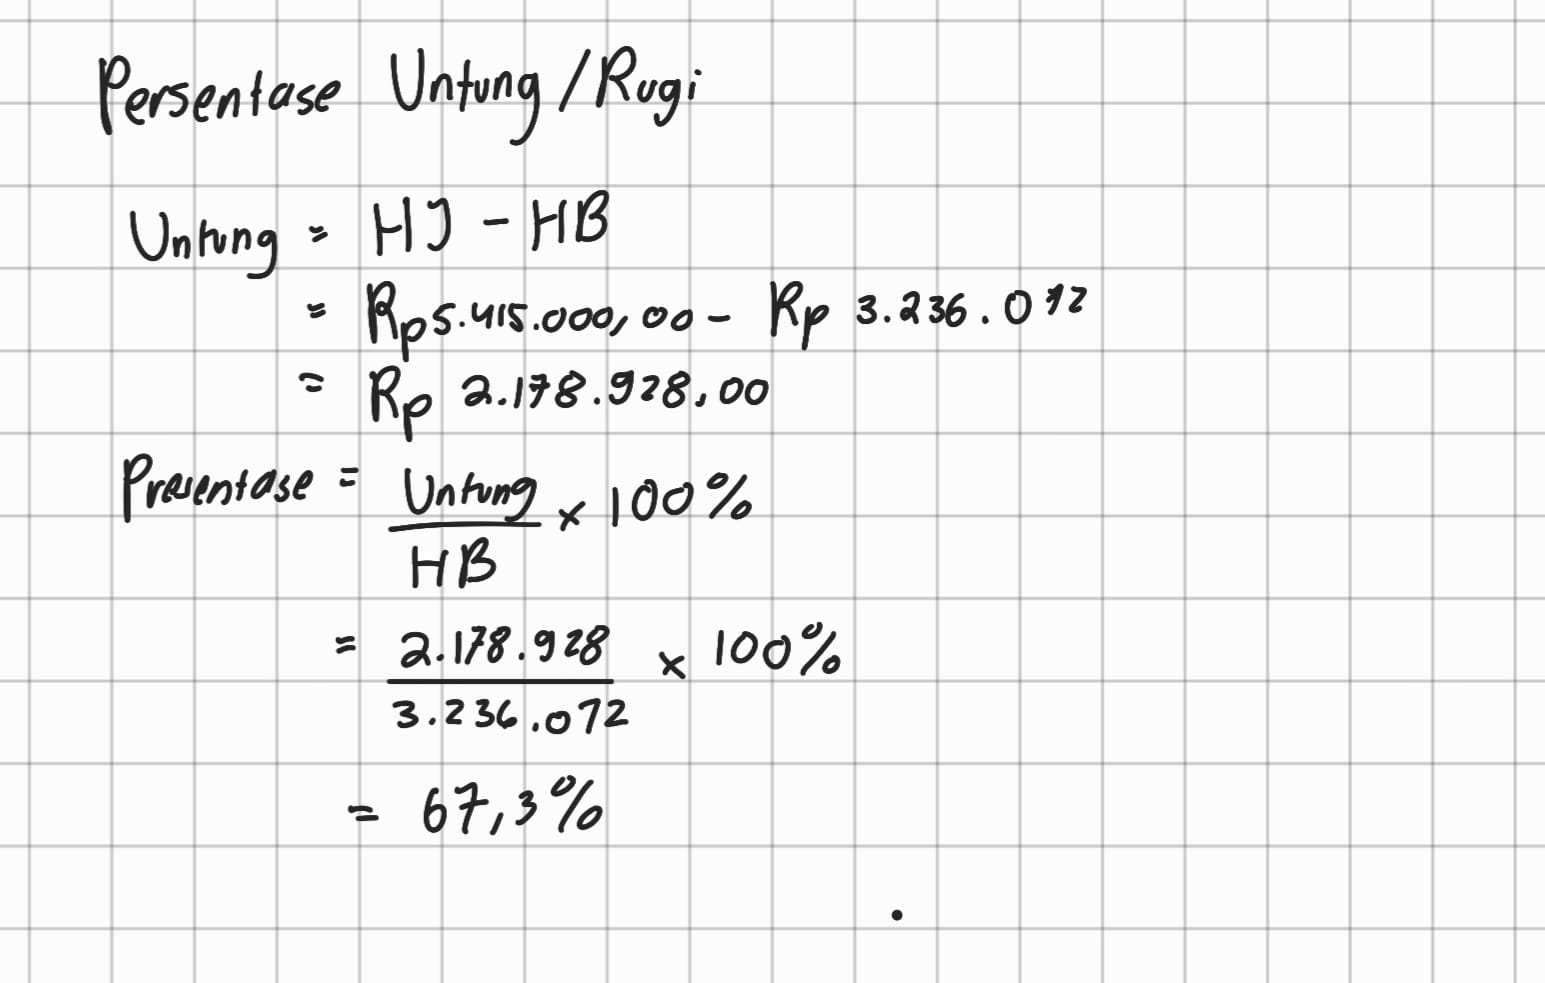 Persentase Untung/Rugi
Untung = HJ - HB
= Rp 5.415.000,00 - Rp 3.236.072
= Rp 2.178.928,00
Presentase = Untung / HB x 100%
= 2.178.928 / 3.236.072 x 100%
= 67,3%